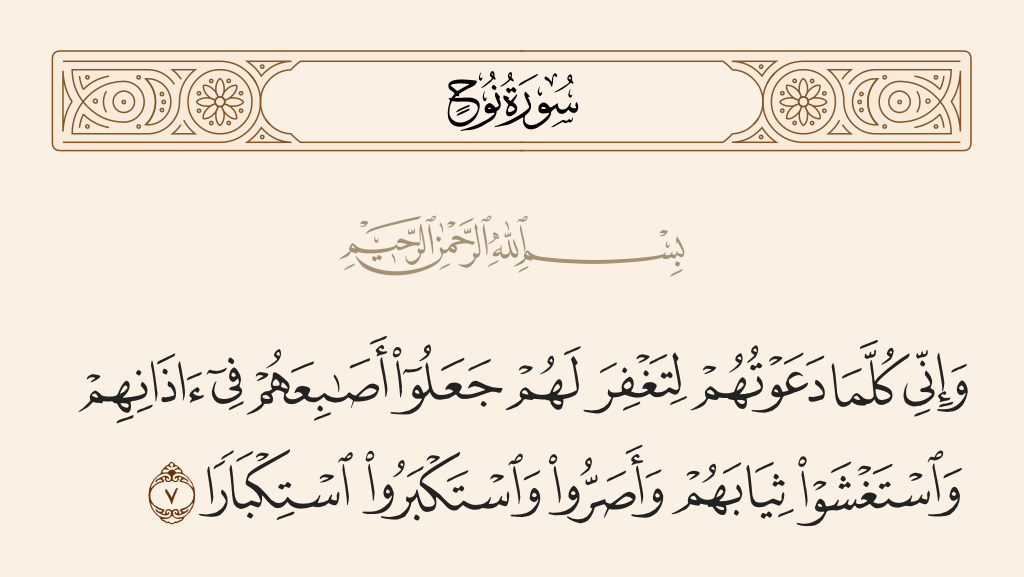 سُورَةُ نُوحٍ
بِسْمِ ٱللَّهِ ٱلرَّحْمَٰنِ ٱلرَّحِيمِ
وَإِنِّى كُلَّمَا دَعَوْتُهُمْ لِتَغْفِرَ لَهُمْ جَعَلُوٓا۟ أَصَـٰبِعَهُمْ فِىٓ ءَاذَانِهِمْ
وَٱسْتَغْشَوْا۟ ثِيَابَهُمْ وَأَصَرُّوا۟ وَٱسْتَكْبَرُوا۟ ٱسْتِكْبَارًا ٧